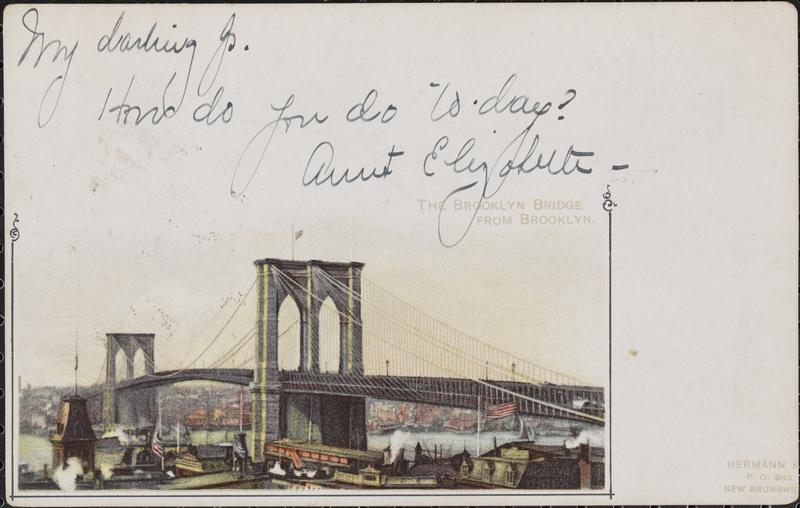 My darling Jo.
How do you do to-day?
Aunt Elizabeth -
THE BROOKLYN BRIDGE
FROM BROOKLYN.
HERMANN
P. O. BOX
NEW BRUNSWI